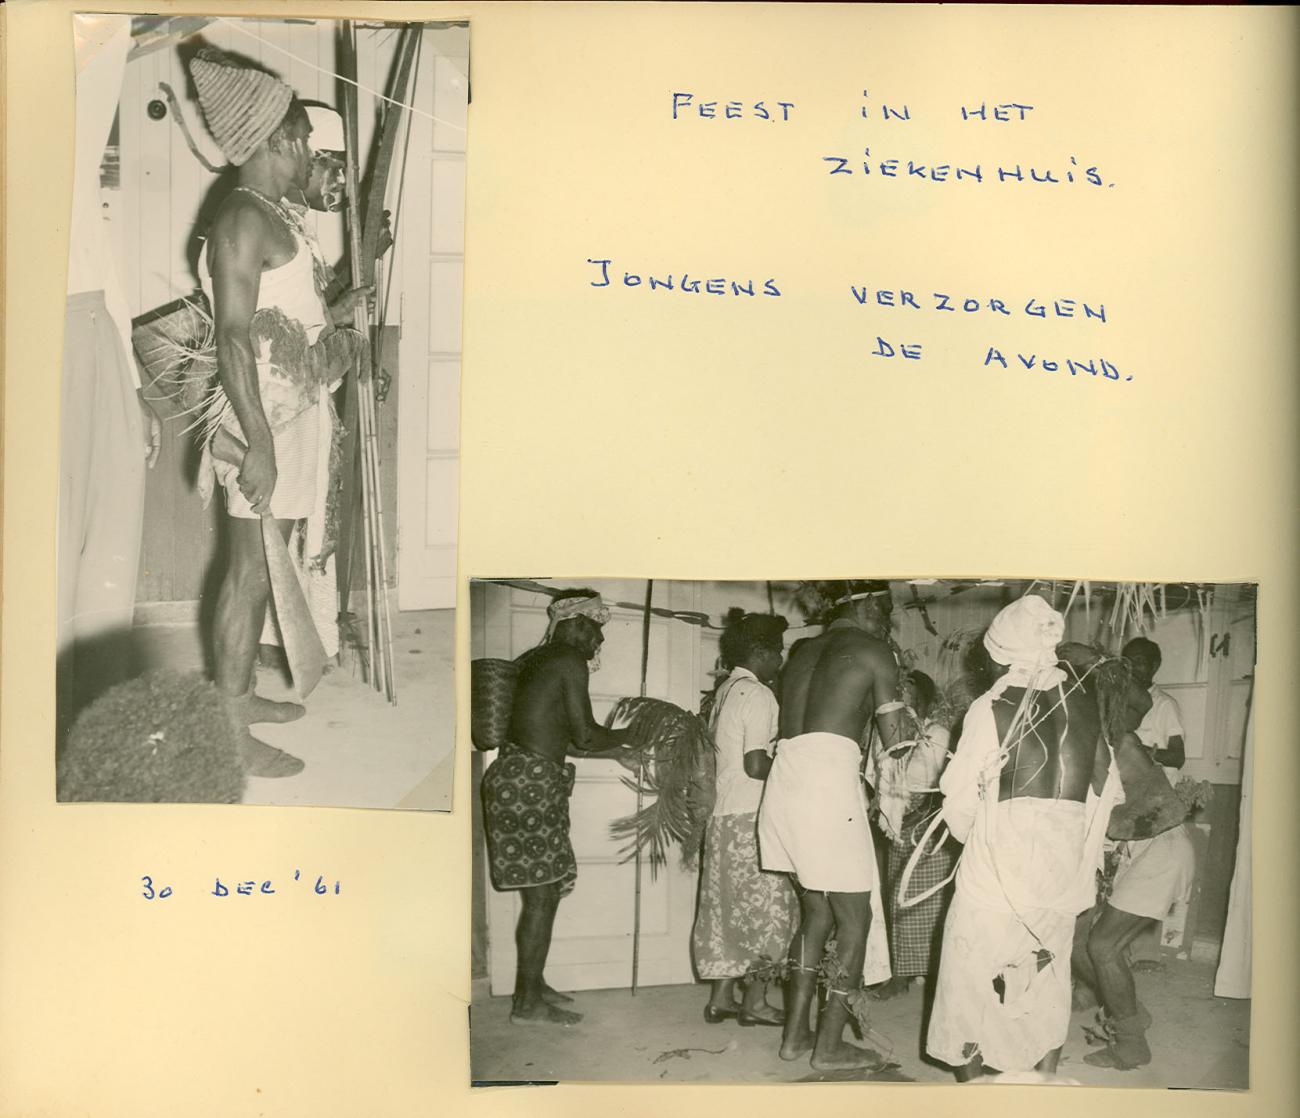 FEEST iN HET
ZiEKENHUiS.
JONGENS VERZORGEN
DE AVOND.
30 DEC '61